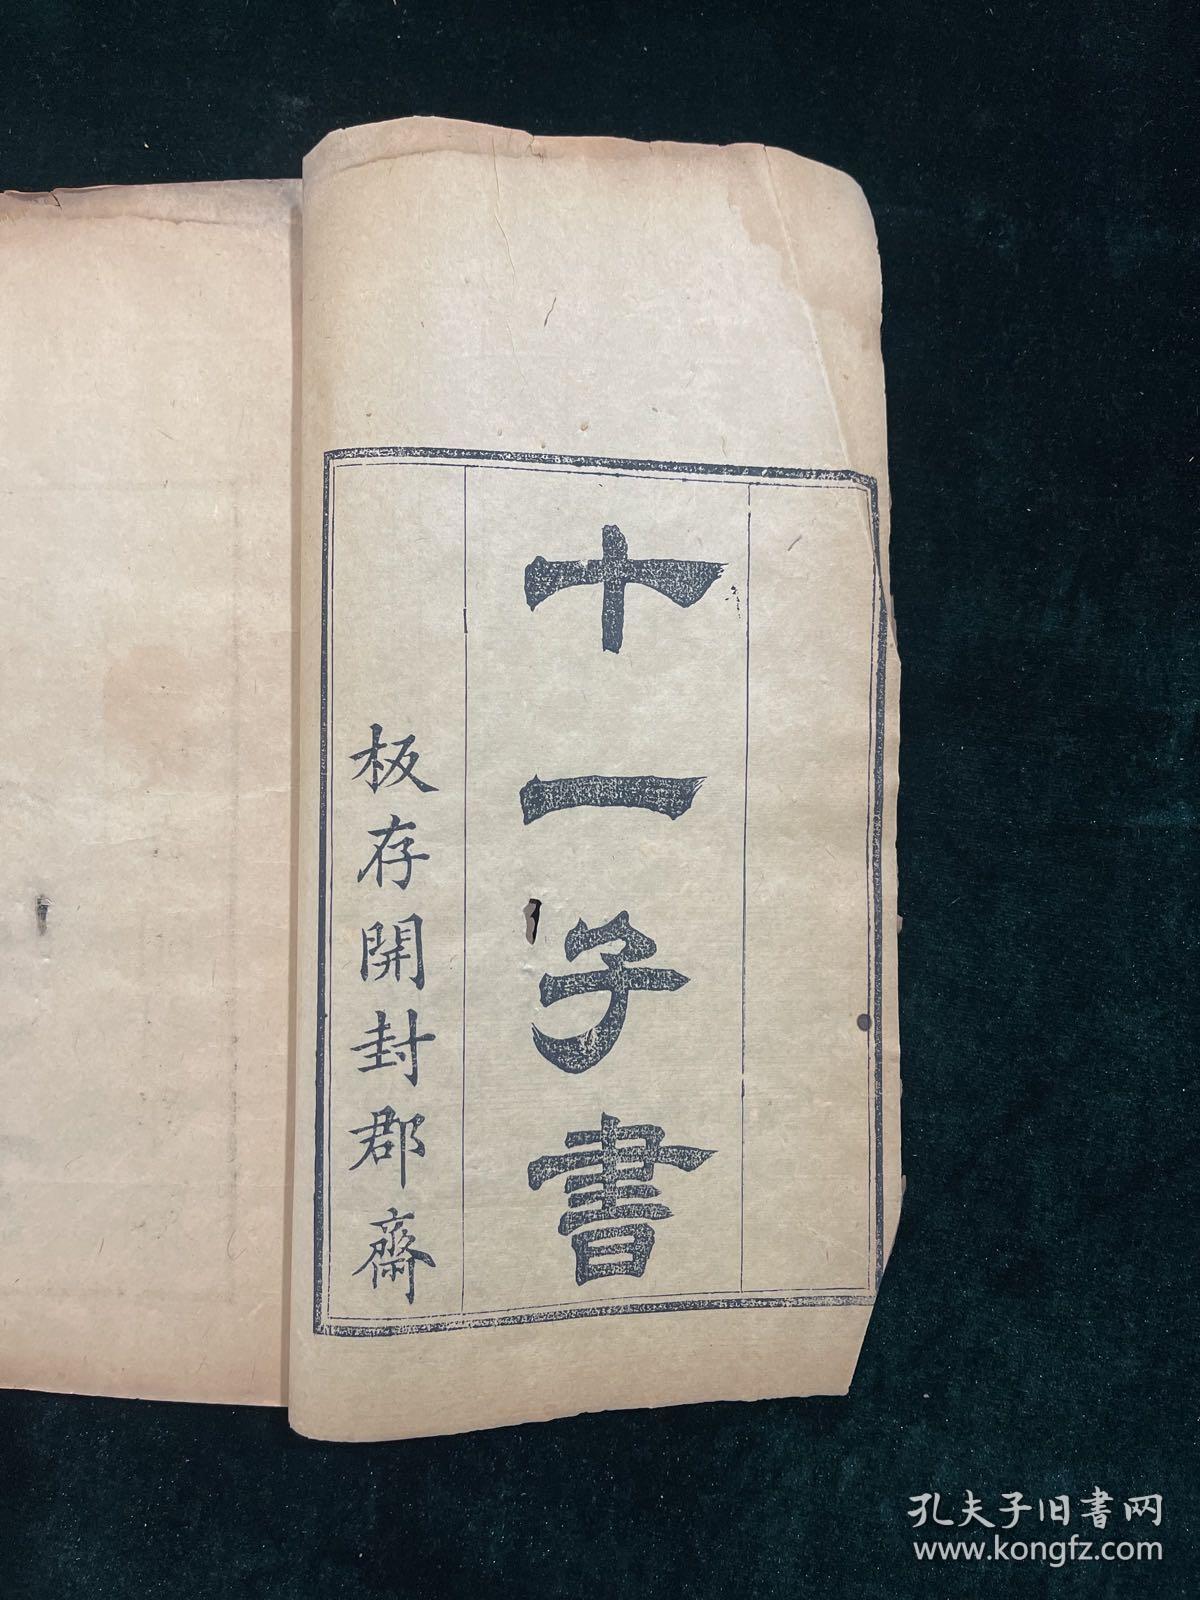 十一子書
板存開封郡齋
孔夫子旧書网
www.kongfz.com